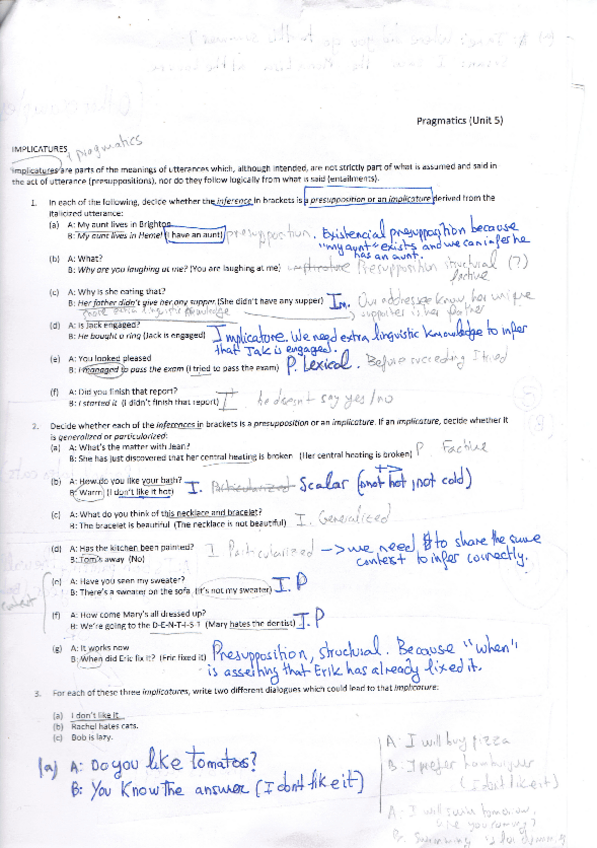 Pragmatics (Unit 5)
IMPLICATURES
pragmatics
Implicatures are parts of the meanings of utterances which, although intended, are not strictly part of what is assumed and said in
the act of utterance (presuppositions), nor do they follow logically from what is said (entailments).
1. In each of the following, decide whether the inference in brackets is a presupposition or an implicature derived from the
italicized utterance:
(a) A: My aunt lives in Brighton
B: My aunt lives in Hemel (I have an aunt) presupposition. Existencial presupposition because
"my aunt" exists and we can infer he
has an aunt.
(b) A: What?
B: Why are you laughing at me? (You are laughing at me) Presupposition structural (?)
factive
(c) A: Why is she eating that?
B: Her father didn't give her any supper (She didn't have any supper) Im. Our addressee know her unique
supporter is her father
(d) A: Is Jack engaged?
B: He bought a ring (Jack is engaged) Implicature. We need extra linguistic knowledge to infer
that Jak is engaged.
(e) A: You looked pleased
B: I managed to pass the exam (I tried to pass the exam) P. Lexical. Before succeeding I tried
(f) A: Did you finish that report?
B: I started it (I didn't finish that report) I he doesn't say yes/no
2. Decide whether each of the inferences in brackets is a presupposition or an implicature. If an implicature, decide whether it
is generalized or particularized:
(a) A: What's the matter with Jean?
B: She has just discovered that her central heating is broken (Her central heating is broken) P. Factive
(b) A: How do you like your bath?
B: Warm (I don't like it hot) I. Particularized Scalar (not hot, not cold)
+>
(c) A: What do you think of this necklace and bracelet?
B: The bracelet is beautiful (The necklace is not beautiful) I. Generalized
(d) A: Has the kitchen been painted?
B: Tom's away (No) I Particularized -> we need to share the same
context to infer correctly.
(e) A: Have you seen my sweater?
B: There's a sweater on the sofa (It's not my sweater) I.P
context
(f) A: How come Mary's all dressed up?
B: We're going to the D-E-N-T-I-S-T (Mary hates the dentist) I.P
(g) A: It works now
B: When did Eric fix it? (Eric fixed it) Presupposition, structural. Because "when"
is asserting that Erik has already fixed it.
3. For each of these three implicatures, write two different dialogues which could lead to that implicature:
(a) I don't like it
(b) Rachel hates cats.
(c) Bob is lazy.
(a) A: Do you like tomatos?
B: You Know the answer (I dont like it)
A: I will buy pizza
B: I prefer hamburguer
(I dont like it)
A: I will swim tomorrow.